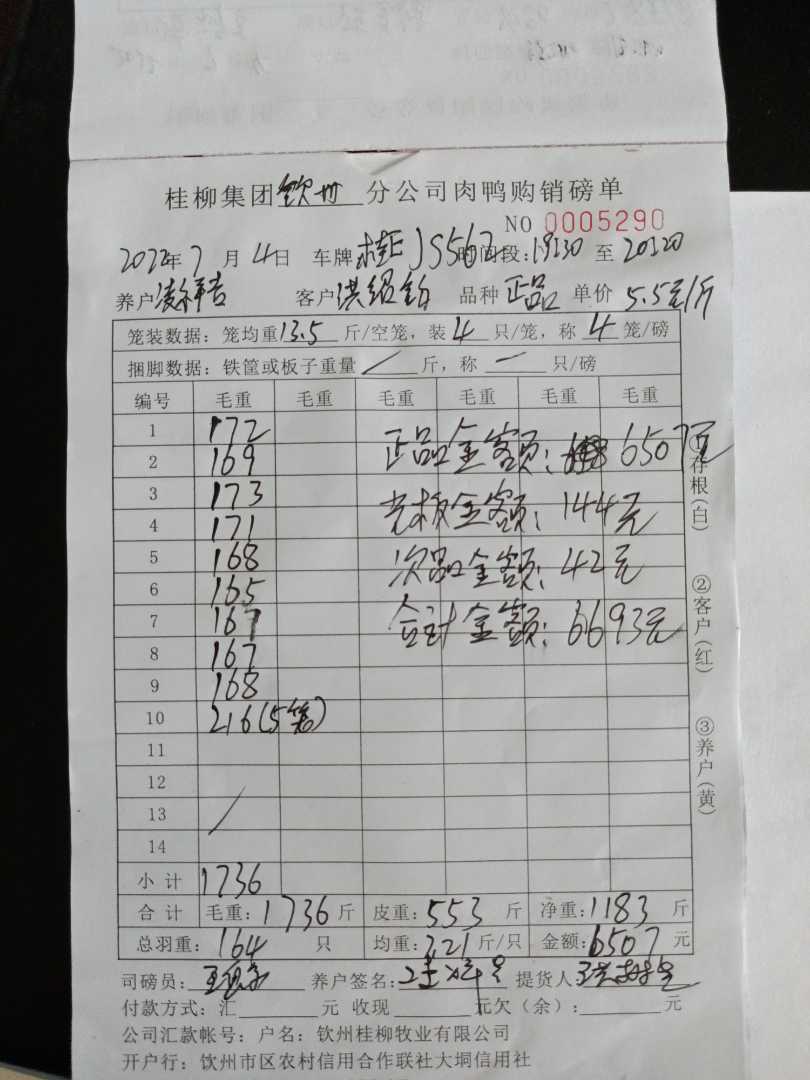 桂柳集团钦州分公司肉鸭购销磅单
NO 0005290
2022年7月4日 车牌桂 JS567 时间段:19:30 至 20:20
养户 凌祥吉 客户 洪绍 品种 正品 单价 5.5元/斤
笼装数据:笼均重13.5斤/空笼,装4只/笼,称4笼/磅
捆脚数据:铁筐或板子重量/斤,称一只/磅
编号 毛重 毛重 毛重 毛重 毛重 毛重
1 172
2 169 正品金额: 6507元
3 173
4 171 光板金额:144元
5 168 次品金额:42元
6 165
7 167 合计金额:6693元
8 167
9 168
10 216(5笼)
11
12
13 /
14
小计 1736
合计 毛重:1736斤 皮重:553斤 净重:1183斤
总羽重:164只 均重:7.21斤/只 金额:6507元
司磅员: 养户签名: 提货人
付款方式:汇 元 收现 元欠(余): 元
公司汇款帐号:户名:钦州桂柳牧业有限公司
开户行:饮州市区农村信用合作联社大垌信用社
①存根(白)
②客户(红)
③养户(黄)